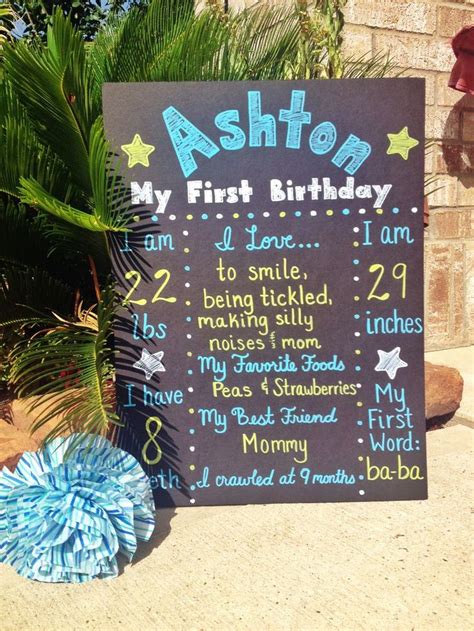 Ashton
My First Birthday
I am
22
lbs
I have
8
eth
I Love...
to smile,
being tickled,
making silly
noises & mom
My Favorite Foods
Peas & Strawberries
My Best Friend
Mommy
I crawled at 9 months
I am
29
inches
My
First
Word:
ba-ba